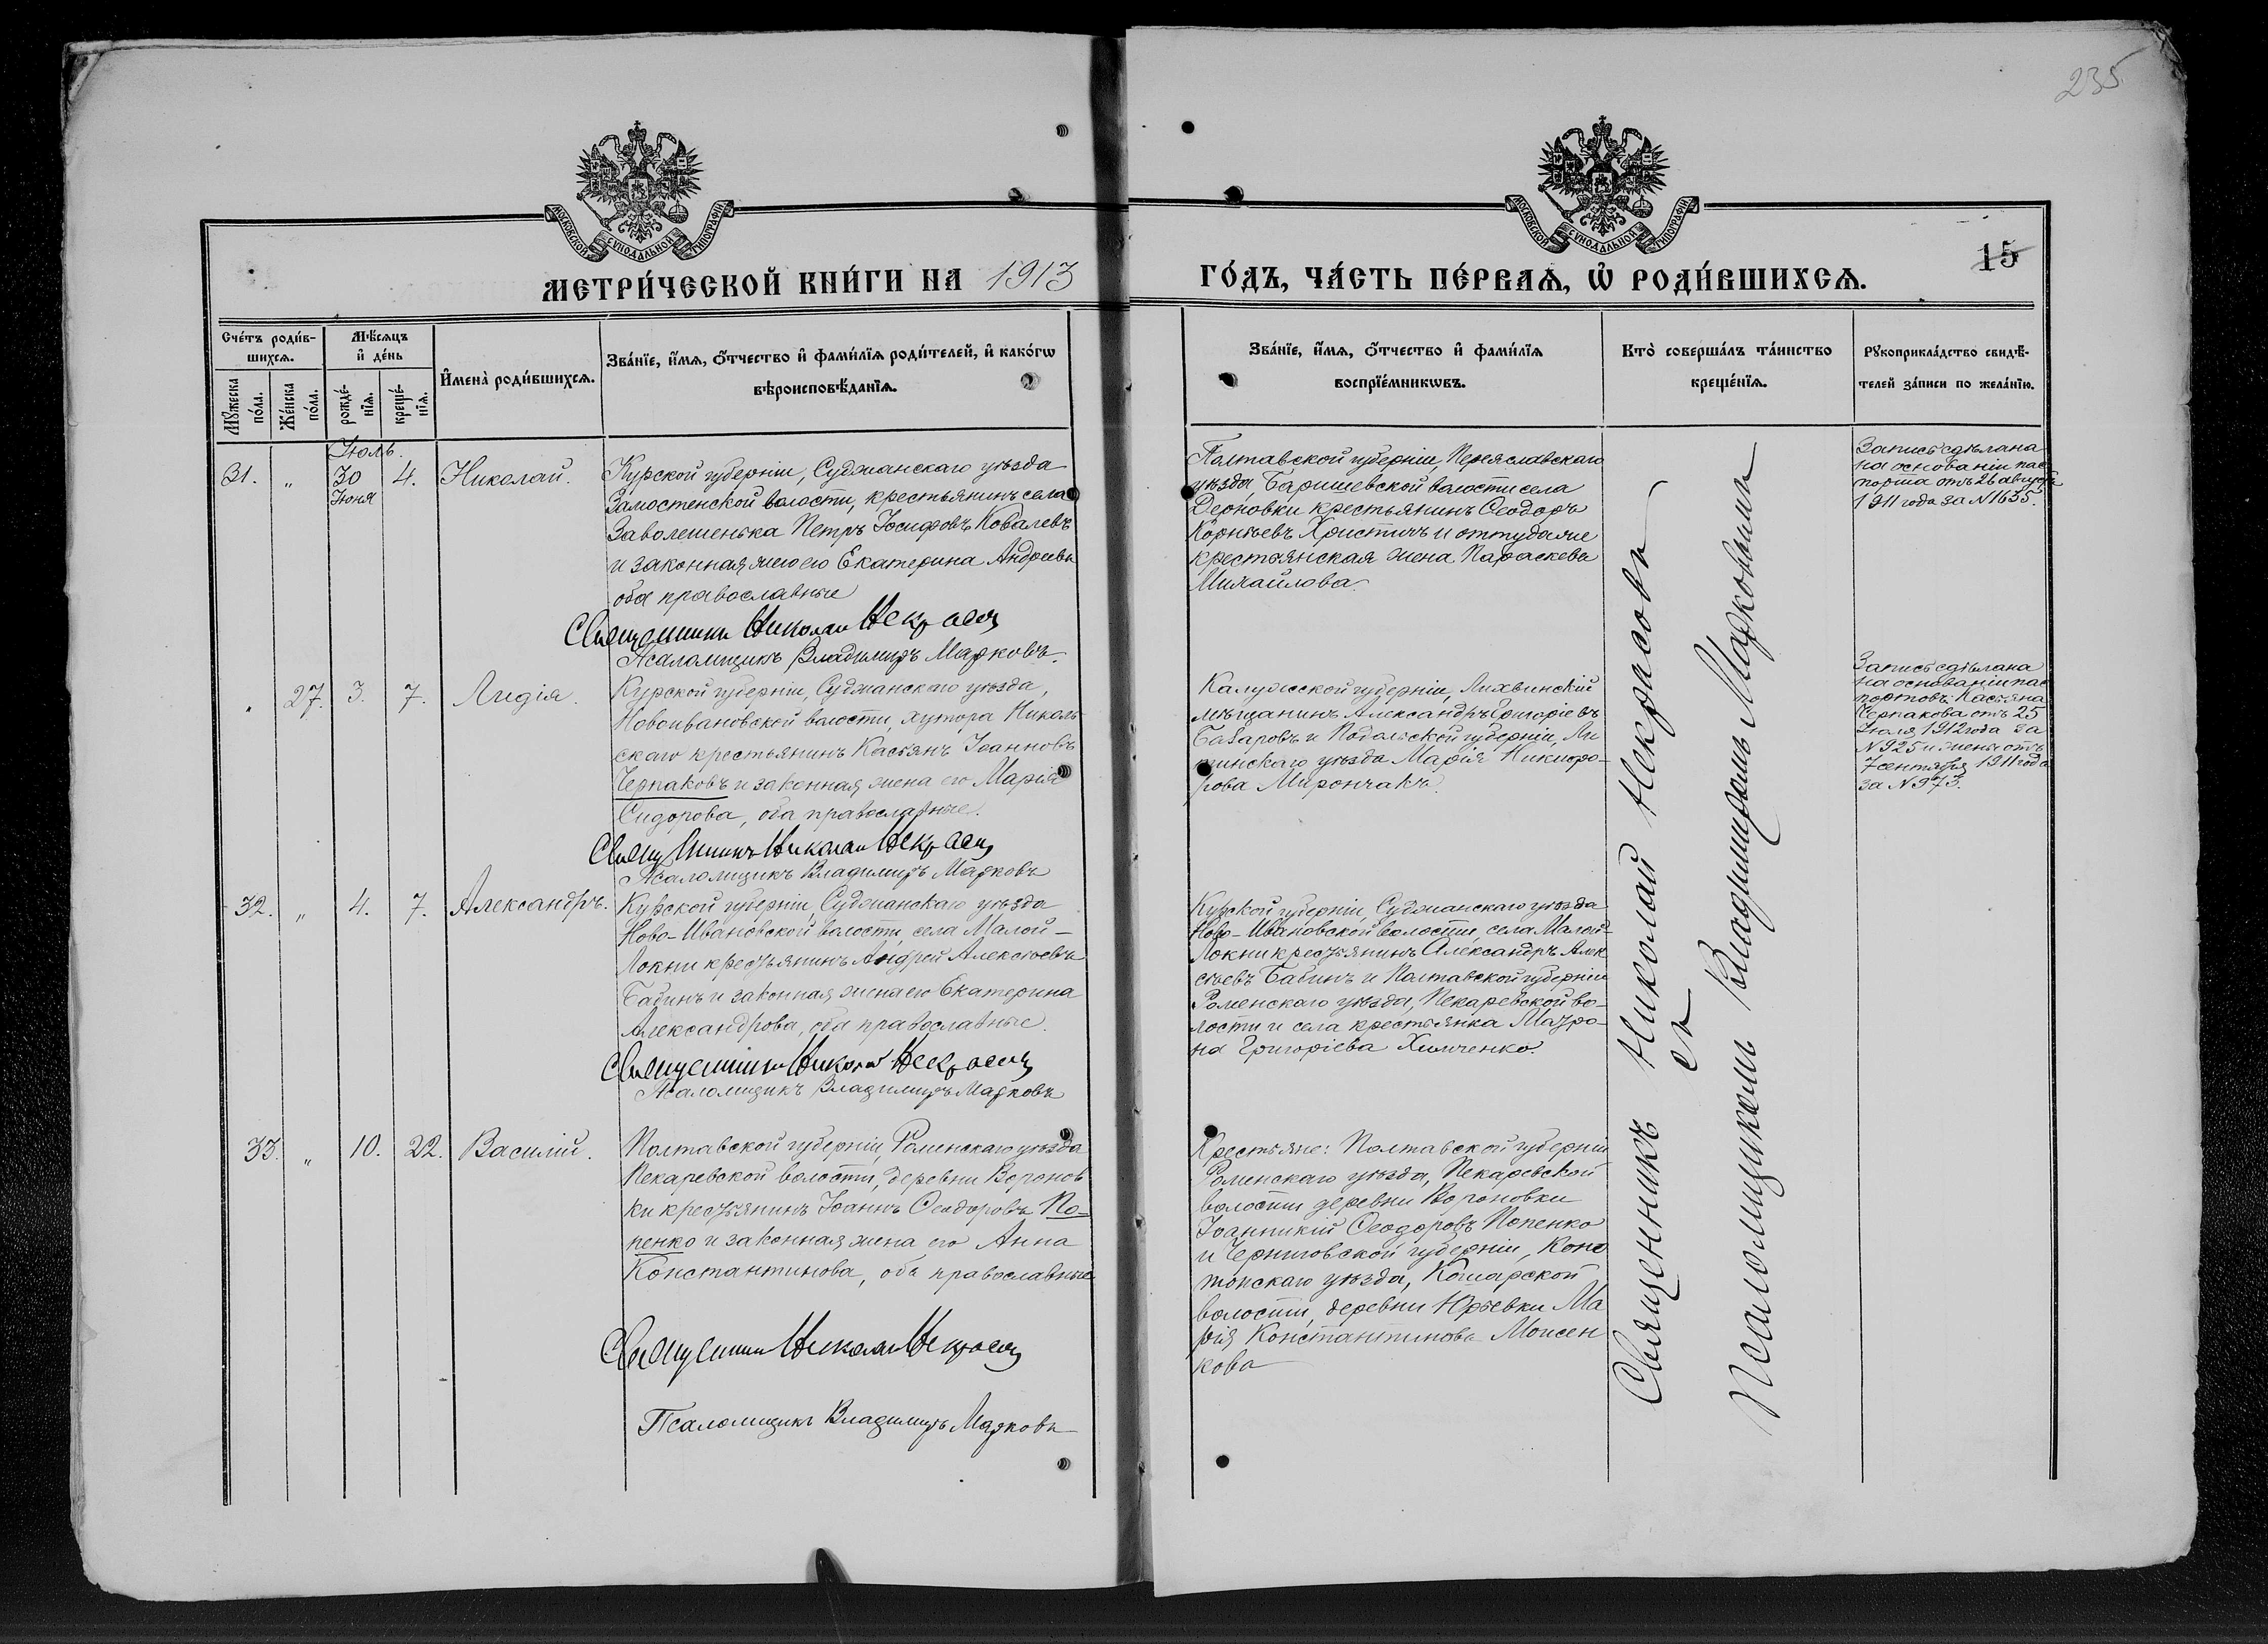 235
МОСКОВСКОЙ СѴНОДАЛЬНОЙ ТИПОГРАФІИ
МОСКОВСКОЙ СѴНОДАЛЬНОЙ ТИПОГРАФІИ
15
МЕТРИ́ЧЕСКОЙ КНИ́ГИ НА 1913
ГО́ДЪ, ЧА́СТЬ ПЕ́РВАѦ, Ѽ РОДИ́ВШИХСѦ.
Сче́тъ роди́в-
шихсѧ.
Мꙋ́жеска
по́ла.
Же́нска
по́ла.
Мѣ́сѧцъ
и҆ де́нь
рожде́-
нїѧ.
креще́-
нїѧ.
И҆мена̀ роди́вшихсѧ.
Зва́нїе, и҆́мѧ, ѻ҆́тчество и҆ фами́лїѧ роди́телей, и҆ како́гѡ
вѣроисповѣ́данїѧ.
Зва́нїе, и҆́мѧ, ѻ҆́тчество и҆ фами́лїѧ
воспрїе́мникѡвъ.
Кто̀ соверша́лъ та́инство
креще́нїѧ.
Рꙋкоприкла́дство свидѣ́-
телей за́писи по жела́нїю.
Іюль.
31. " 30 4. Николай.
Іюня
Курской губерніи, Суджанскаго уѣзда
Замостенской волости, крестьянинъ села
Заволешенька Петръ Іосифовъ Ковалевъ
и законная жена его Екатерина Андреева
оба православные
Священникъ Николай Некрасовъ
Псаломщикъ Владимиръ Марковъ.
Полтавской губерніи, Переяславскаго
уѣзда, Баришевской волости села
Дерновки крестьянинъ Ѳеодоръ
Корнѣевъ Христичъ и оттуда же
крестьянская жена Параскева
Михайлова.
Запись сдѣлана
на основаніи пас
порта отъ 26 августа
1911 года за № 1635.
" 27. 3. 7. Лидія.
Курской губерніи, Суджанскаго уѣзда,
Новоивановской волости, хутора Николь
скаго крестьянинъ Касьянъ Іоанновъ
Черпаковъ и законная жена его Марія
Сидорова, оба православные.
Священникъ Николай Некрасовъ
Псаломщикъ Владимиръ Марковъ
Калужской губерніи, Лихвинскій
мѣщанинъ Александръ Григоріевъ
Базаровъ и Подольской губерніи, Ли
тинскаго уѣзда Марія Никифо-
рова Мирончакъ.
Запись сдѣлана
на основаніи пас
портовъ: Касьяна
Черпакова отъ 25
Іюля 1912 года за
№ 925 и жены отъ
7 сентября 1911 года
за № 973.
32. " 4. 7. Александръ.
Курской губерніи, Суджанскаго уѣзда
Ново-Ивановской волости, села Малой-
Локни крестьянинъ Андрей Алексѣевъ
Бабинъ и законная жена его Екатерина
Александрова, оба православные.
Священникъ Николай Некрасовъ
Псаломщикъ Владимиръ Марковъ
Курской губерніи, Суджанскаго уѣзда
Ново-Ивановской волости, села Малой-
Локни крестьянинъ Александръ Алек
сѣевъ Бабинъ и Полтавской губерніи
Роменскаго уѣзда, Пекаревской во-
лости и села крестьянка Матро-
на Григоріева Химченко.
33. " 10. 22. Василій.
Полтавской губерніи, Роменскаго уѣзда
Пекаревской волости, деревни Воронов
ки крестьянинъ Іоаннъ Ѳеодоровъ По-
пенко и законная жена его Анна
Константинова, оба православные
Священникъ Николай Некрасовъ
Псаломщикъ Владимиръ Марковъ
Крестьяне: Полтавской губерніи
Роменскаго уѣзда, Пекаревской
волости деревни Вороновки
Іоанникій Ѳеодоровъ Попенко
и Черниговской губерніи, Коно
топскаго уѣзда, Кошарской
волости, деревни Юрьевки Ма
рія Константинова Моисен
кова
Священникъ Николай Некрасовъ
съ
Псаломщикомъ Владимиромъ Марковымъ